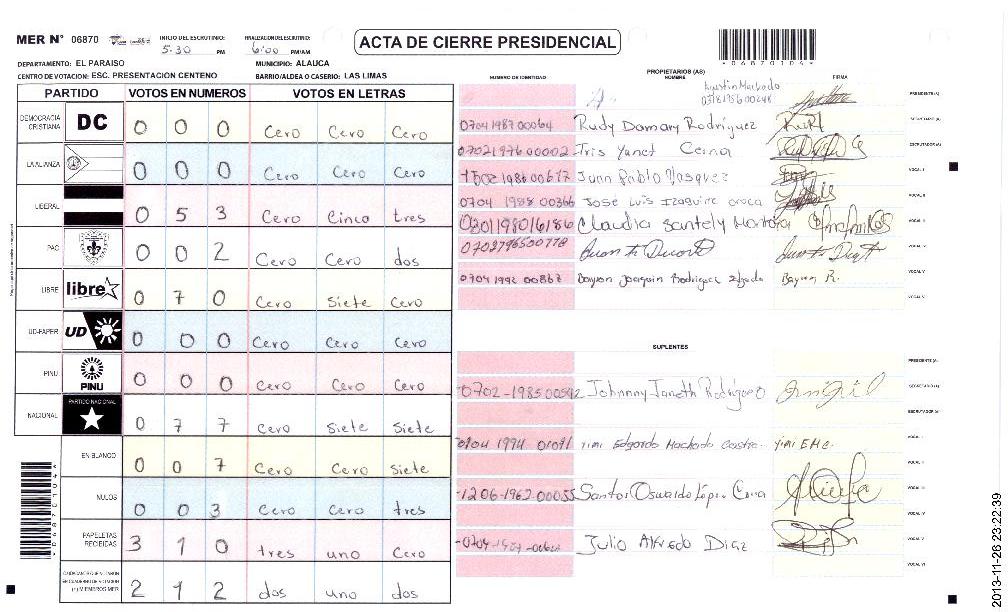 MER N° 06870 INICIO DEL ESCRUTINIO: 5:30 PM FINALIZACION DEL ESCRUTINIO: 6:00 PM/AM
ACTA DE CIERRE PRESIDENCIAL
*06870104*
DEPARTAMENTO: EL PARAISO MUNICIPIO: ALAUCA
CENTRO DE VOTACION: ESC. PRESENTACION CENTENO BARRIO/ALDEA O CASERIO: LAS LIMAS
PARTIDO VOTOS EN NUMEROS VOTOS EN LETRAS
DEMOCRACIA CRISTIANA DC 0 0 0 Cero Cero Cero
LA ALIANZA 0 0 0 Cero Cero Cero
LIBERAL 0 5 3 Cero Cinco tres
PAC 0 0 2 Cero Cero dos
LIBRE libre 0 7 0 Cero Siete Cero
UD-FAPER UD 0 0 0 Cero Cero Cero
PINU PINU 0 0 0 Cero Cero Cero
NACIONAL PARTIDO NACIONAL 0 7 7 Cero Siete Siete
EN BLANCO 0 0 7 Cero Cero Siete
NULOS 0 0 3 Cero Cero tres
PAPELETAS RECIBIDAS 3 1 0 tres uno Cero
CIUDADANOS QUE VOTARON EN CUADERNO DE VOTACION (+) MIEMBROS MER 2 1 2 dos uno dos
PROPIETARIOS (AS)
NUMERO DE IDENTIDAD NOMBRE FIRMA
Agustin Machado PRESIDENTE (A)
0704 1987 00064 Rudy Damary Rodriguez SECRETARIO (A)
0702 1976 00002 Iris Yanet Cerna ESCRUTADOR (A)
Juan Pablo Vasquez VOCAL I
0704 1988 00366 Jose Luis Izaguirre VOCAL II
Claudia Santely VOCAL III
VOCAL IV
0704 1992 Bayron Joaquin Rodriguez Bayron R. VOCAL V
VOCAL VI
SUPLENTES
PRESIDENTE (A)
0702-1985 Johnny Janeth Rodriguez SECRETARIO (A)
ESCRUTADOR (A)
Yimi Edgardo Machado Castro Yimi EMC. VOCAL I
VOCAL II
1206-1962-00055 Santos Oswaldo López VOCAL III
VOCAL IV
Julio Alfredo Diaz VOCAL V
VOCAL VI
2013-11-26 23:22:39